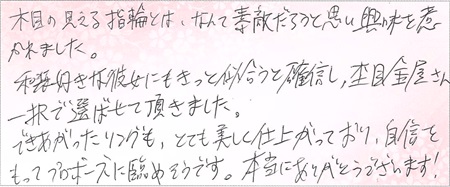 木目の見える指輪とは、なんて素敵だろうと思い興味を惹
かれました。
和装好きな彼女にもきっと似合うと確信し、杢目金屋さん
一択で選ばせて頂きました。
できあがったリングも、とても美しく仕上がっており、自信を
もってプロポーズに臨めそうです。本当にありがとうございます!